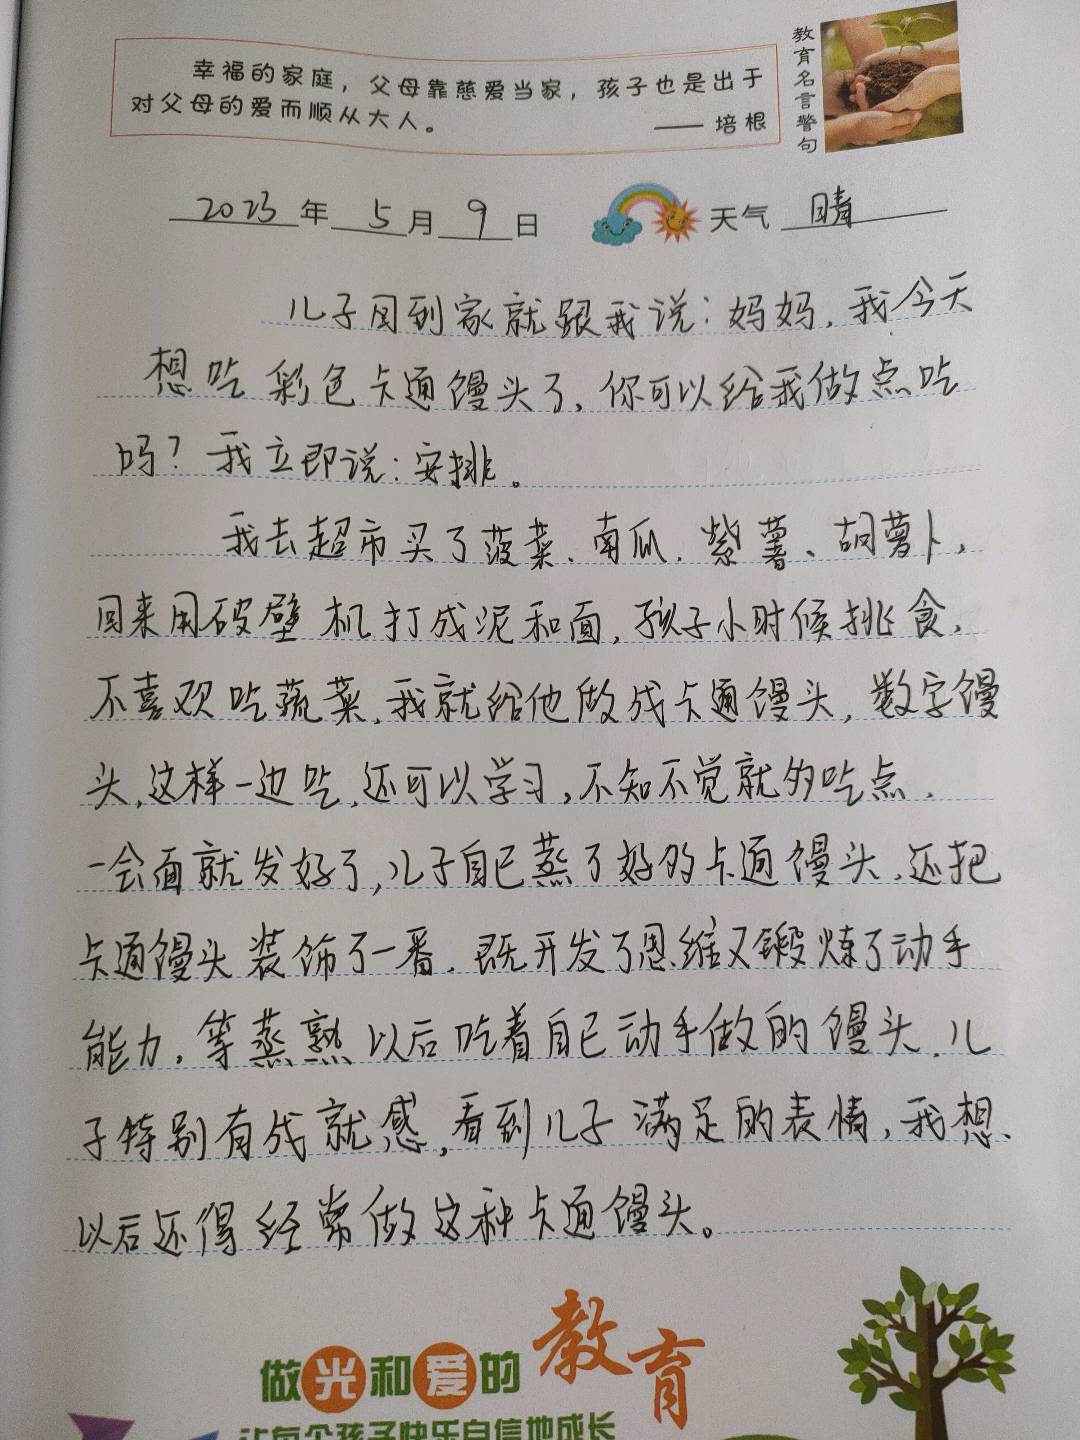 幸福的家庭，父母靠慈爱当家，孩子也是出于
对父母的爱而顺从大人。
—— 培根
教育名言警句
2023年5月9日 天气 晴
儿子回到家就跟我说：妈妈，我今天
想吃彩色卡通馒头了，你可以给我做点吃
吗？我立即说：安排。
我去超市买了菠菜、南瓜、紫薯、胡萝卜，
回来用破壁机打成泥和面，孩子小时候挑食，
不喜欢吃蔬菜，我就给他做成卡通馒头，数字馒
头，这样一边吃，还可以学习，不知不觉就多吃点，
一会面就发好了，儿子自己蒸了好的卡通馒头，还把
卡通馒头装饰了一番，既开发了思维又锻炼了动手
能力，等蒸熟以后吃着自己动手做的馒头，儿
子特别有成就感，看到儿子满足的表情，我想、
以后还得经常做这种卡通馒头。
做光和爱的教育
让每个孩子快乐自信地成长